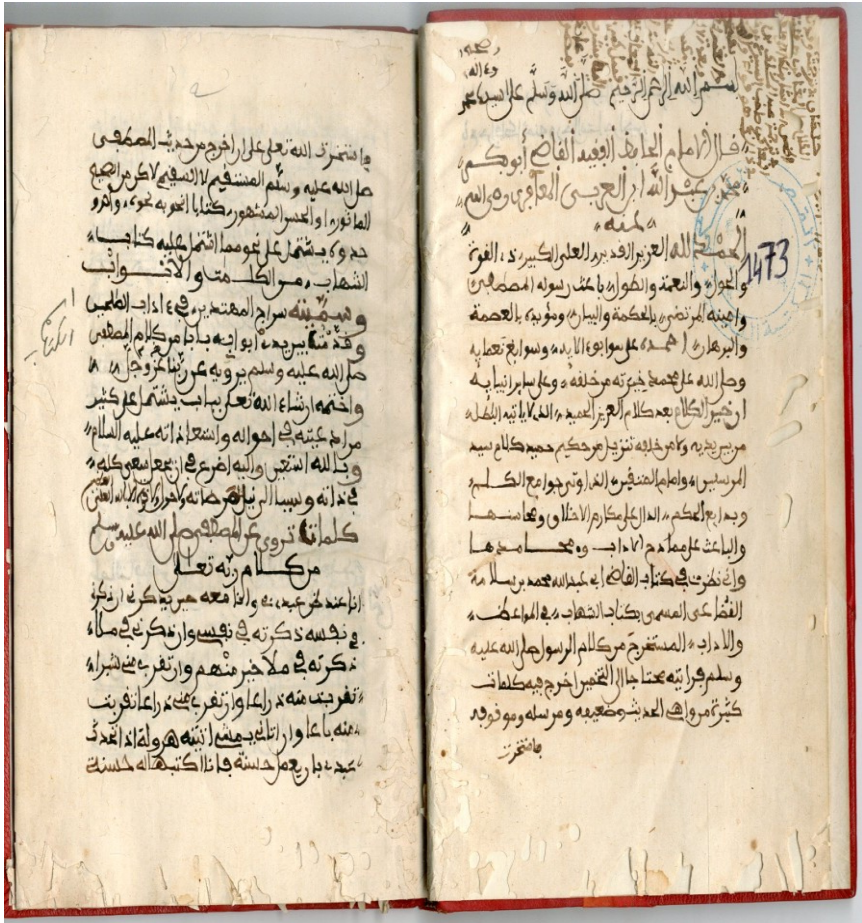 بسم الله الرحمن الرحيم صلى الله وسلم على سيدنا محمد
قال الإمام الحافظ الفقيه القاضي أبو بكر
محمد بن عبد الله ابن العربي المعافري رضي الله
عنه
الحمد لله العزيز القدير العلي الكبير ذي القوة
والحول والنعمة والطول باعث رسوله المصطفى
وأمينه المرتضى بالحكمة والبيان ومؤيده بالعصمة
والبرهان أحمده على سوابق آلائه وسوابغ نعمائه
وصلى الله على محمد خيرته من خلقه وعلى سائر أنبيائه
إن خير الكلام بعد كلام العزيز الحميد الذي لا يأتيه الباطل
من بين يديه ولا من خلفه تنزيل من حكيم حميد كلام سيد
المرسلين وإمام المتقين الذي أوتي جوامع الكلم
وبدائع الحكم الدال على مكارم الأخلاق ومحاسنها
والباعث على ممادح الآداب ومحامدها
وإني نظرت في كتاب القاضي أبي عبد الله محمد بن سلامة
القضاعي المسمى بكتاب الشهاب في المواعظ
والآداب المستخرج من كلام الرسول صلى الله عليه
وسلم فرأيته محتاجا إلى التخير أخرج فيه كلمات
كثيرة من واهي الحديث وضعيفه ومرسله وموقوفه
فاستخرت
1473
فاستخرت الله تعلى على أن أخرج من حديث المصطفى
صلى الله عليه وسلم المستقيم لا السقيم لاكن من الصحيح
المأثور أو الحسن المشهور كتابا أنحو به نحوه وأحذو
حذوه يشتمل على نحو مما اشتمل عليه كتاب
الشهاب من الكلمات والأبواب
وسميته سراج المهتدين في آداب الصالحين
وقدمت بين يدي أبوابه بابا من كلام المصطفى
صلى الله عليه وسلم يرويه عن ربنا عز وجل
وأختمه إن شاء الله تعلى بباب يشتمل على كثير
من أدعيته في أحواله واستعاذاته عليه السلام
وبالله أستعين وإليه أضرع في أن يجعل سعيي كله
في ذاته وسببا إلى نيل مرضاته
كلمات تروى عن المصطفى صلى الله عليه وسلم
من كلام ربه تعلى
أنا عند ظن عبدي بي وأنا معه حين يذكرني إن ذكرني
في نفسه ذكرته في نفسي وإن ذكرني في ملإ
ذكرته في ملإ خير منهم وإن تقرب مني شبرا
تقربت منه ذراعا وإن تقرب مني ذراعا تقربت
منه باعا وإن أتاني يمشي أتيته هرولة إذا تحدث
عبدي بأن يعمل حسنة فأنا أكتبها له حسنة